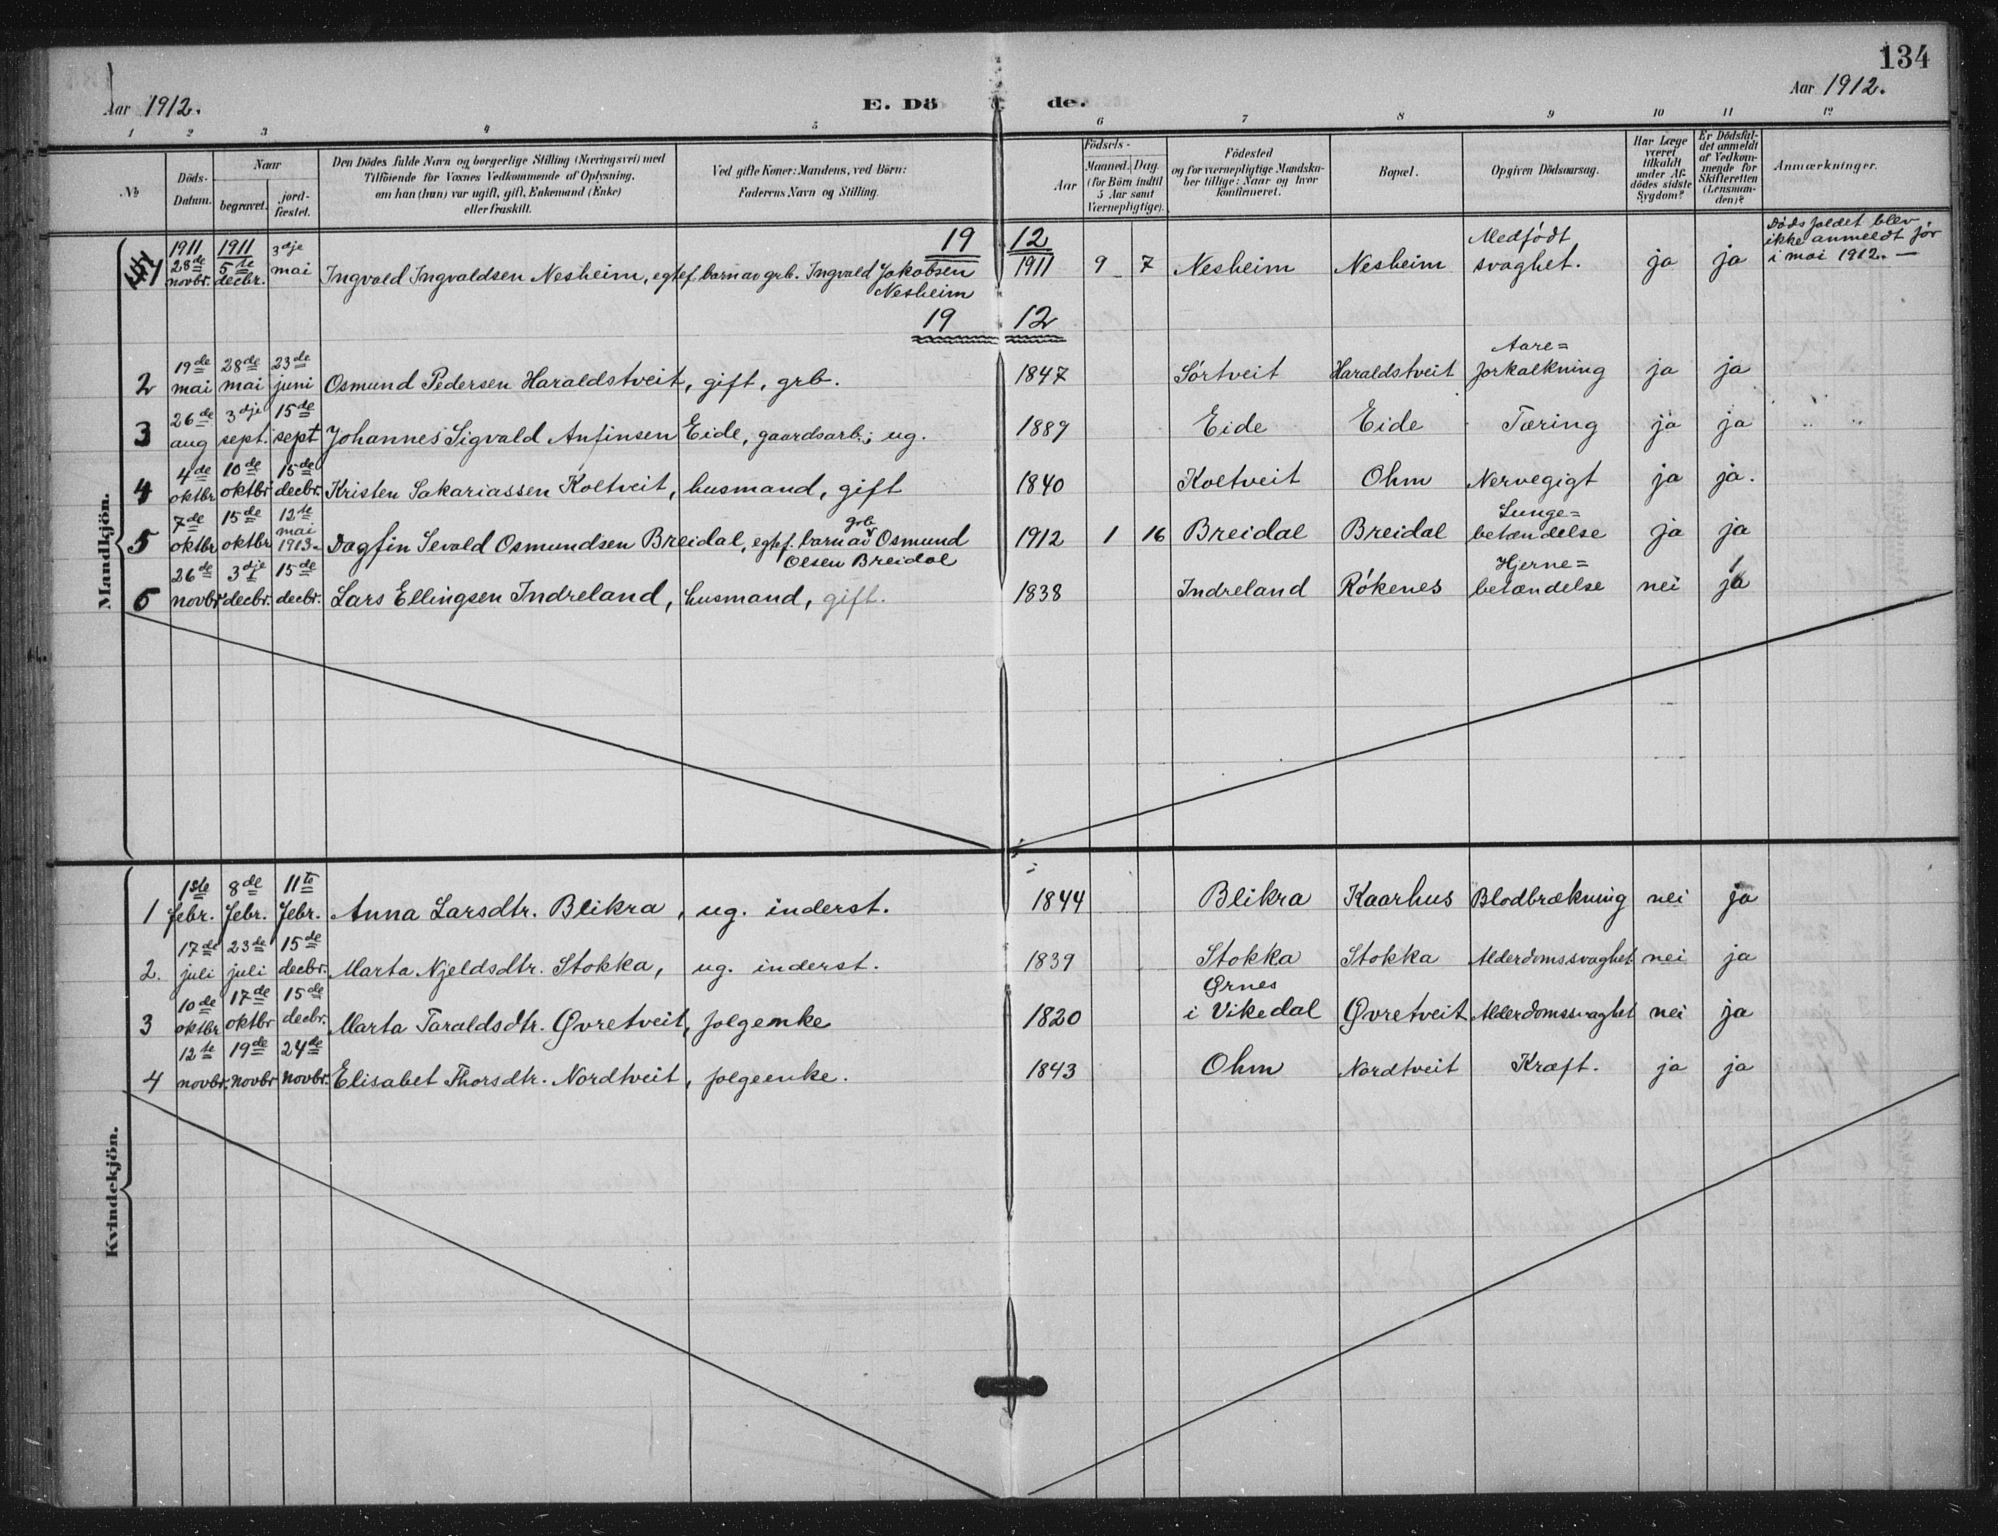 134
Aar 1912.
E. Döde.
Aar 1912.
1 2 3 4 5 6 7 8 9 10 11 12
No
Döds-Datum.
Naar
begravet.
jord-fæstet.
Den Dödes fulde Navn og borgerlige Stilling (Næringsvei) med
Tilföiende for Voxnes Vedkommende af Oplysning,
om han (hun) var ugift, gift, Enkemand (Enke)
eller fraskilt.
Ved gifte Koner: Mandens, ved Börn:
Faderens Navn og Stilling.
Födsels-
Aar
Maaned. Dag.
(for Börn indtil
5 Aar samt
Værnepligtige).
Födested
og for værnepligtige Mandska-
ber tillige: Naar og hvor
konfirmeret.
Bopæl.
Opgiven Dödsaarsag.
Har Læge
været
tilkaldt
under Af-
dödes sidste
Sygdom?
Er Dödsfal-
det anmeldt
af Vedkom-
mende for
Skifteretten
(Lensman-
den)?
Anmærkninger.
Mandkjön.
1911 28de novbr. 1911 5te decbr. 3dje mai Ingvald Ingvaldsen Nesheim, egtef. barn av grb. Ingvald Jakobsen Nesheim 1911 9 7 Nesheim Nesheim Medfödt svaghet. ja ja Dödsfaldet blev ikke anmeldt för i mai 1912. —
19 12
19 12
2 19de mai 28de mai 23de juni Osmund Pedersen Haraldstveit, gift, grb. 1847 Sörtveit Haraldstveit Aare=forkalkning ja ja
3 26de aug 3dje sept. 15de sept Johannes Sigvald Anfinsen Eide, gaardsarb.; ug. 1889 Eide Eide Tæring ja ja
4 4de oktbr 10de oktbr 15de decbr. Kristen Sakariassen Koltveit, husmand, gift 1840 Koltveit Ohm Nervegigt ja ja.
5 7de oktbr 15de oktbr 12te mai 1913. Dagfin Sevald Osmundsen Breidal, egtef. barn av grb. Osmund Olsen Breidal 1912 1 16 Breidal Breidal Lunge=betændelse ja ja
6 26de novbr 3dje decbr. 15de decbr. Lars Ellingsen Indreland, husmand, gift. 1838 Indreland Rökenes Hjerne=betændelse nei ja
Kvindekjön.
1 1ste febr. 8de febr. 11te febr. Anna Larsdtr. Blikra, ug. inderst. 1844 Blikra Kaarhus Blodbrækning nei ja
2. 17de juli 23de juli 15de decbr. Marta Njeldsdtr. Stokka, ug. inderst. 1839 Stokka Stokka Alderdomssvaghet nei ja
3 10de oktbr 17de oktbr 15de decbr. Marta Taraldsdtr. Øvretveit, folgeenke 1820 Ørnes i Vikedal Øvretveit Alderdomssvaghet nei ja
4 12te novbr. 19de novbr 24de novbr. Elisabet Thorsdtr. Nordtveit, folgeenke. 1843 Ohm Nordtveit Kræft. ja ja